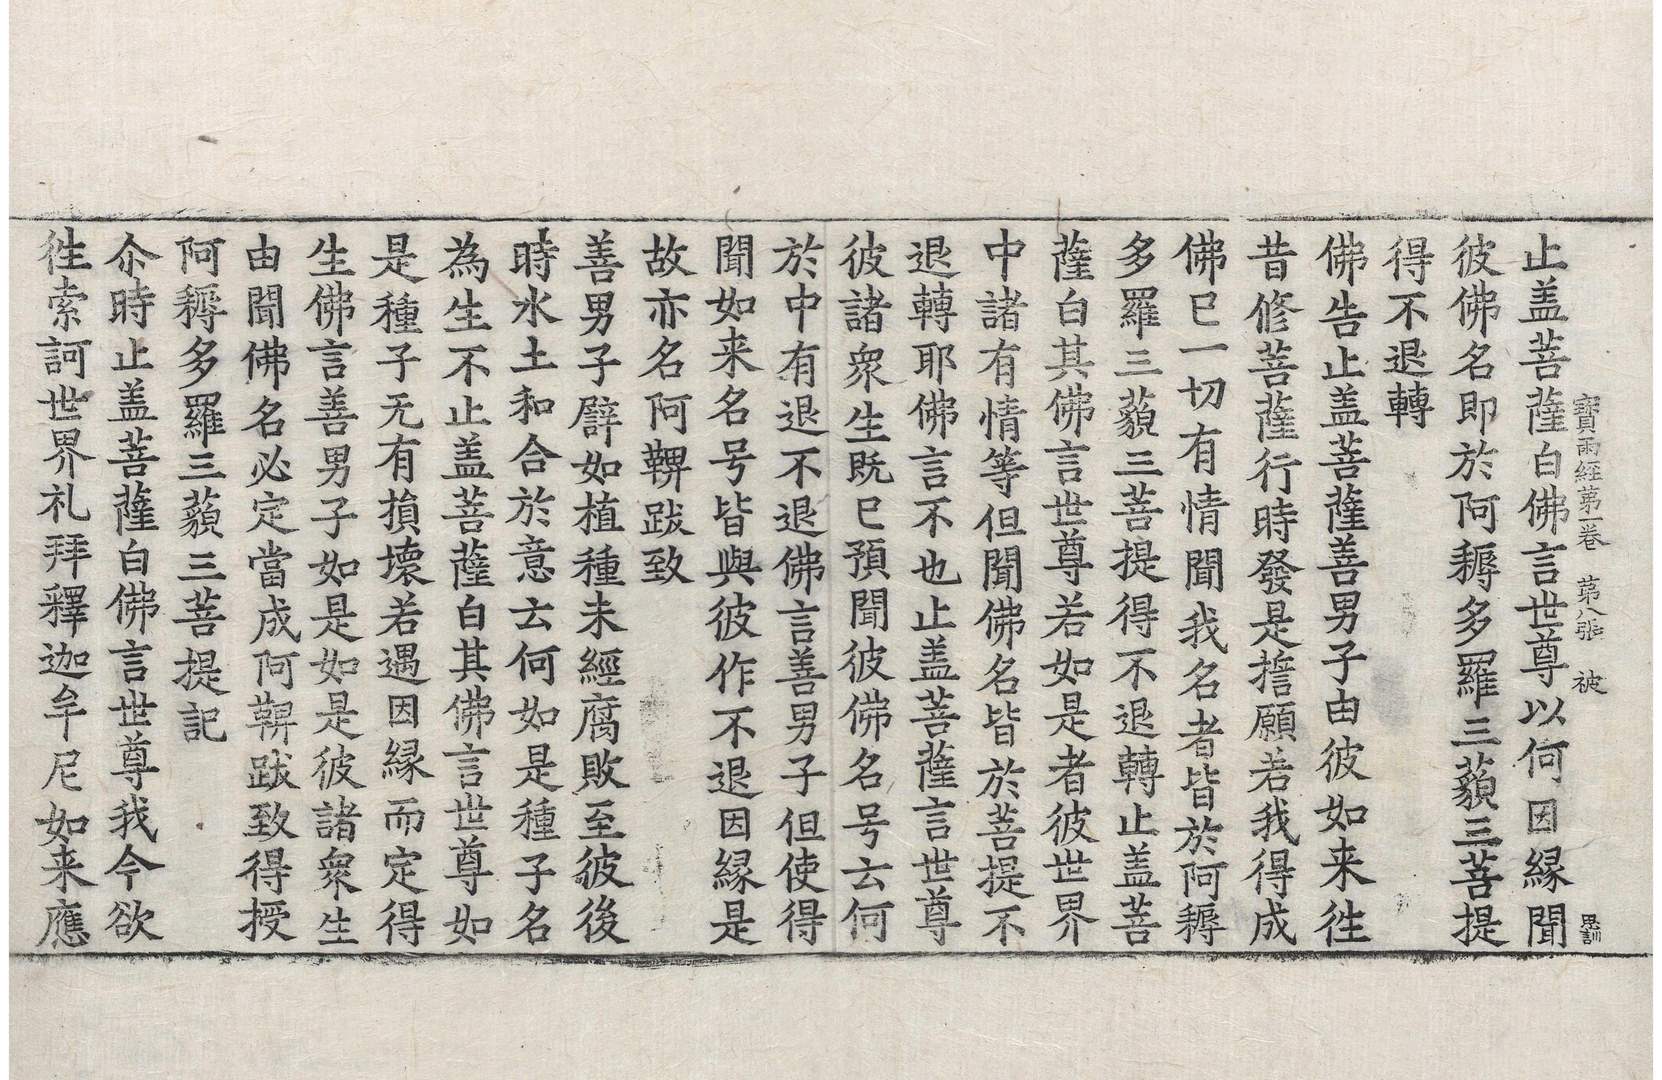 寶雨經第一卷　第八張　被　思訓
止盖菩薩白佛言世尊以何因縁聞
彼佛名即於阿耨多羅三藐三菩提
得不退轉
佛告止盖菩薩善男子由彼如来徃
昔修菩薩行時發是誓願若我得成
佛已一切有情聞我名者皆於阿耨
多羅三藐三菩提得不退轉止盖菩
薩白其佛言世尊若如是者彼世界
中諸有情等但聞佛名皆於菩提不
退轉耶佛言不也止盖菩薩言世尊
彼諸衆生既已預聞彼佛名号云何
於中有退不退佛言善男子但使得
聞如来名号皆與彼作不退因縁是
故亦名阿鞞跋致
善男子譬如植種未經腐敗至彼後
時水土和合於意云何如是種子名
為生不止盖菩薩白其佛言世尊如
是種子无有損壞若遇因縁而定得
生佛言善男子如是如是彼諸衆生
由聞佛名必定當成阿鞞跋致得授
阿耨多羅三藐三菩提記
尒時止盖菩薩白佛言世尊我今欲
徃索訶世界礼拜釋迦牟尼如来應